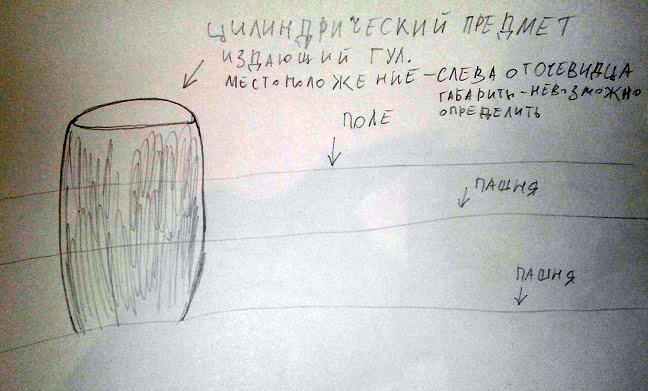 ЦИЛИНДРИЧЕСКИЙ ПРЕДМЕТ
ИЗДАЮЩИЙ ГУЛ.
МЕСТОПОЛОЖЕНИЕ - СЛЕВА ОТ ОЧЕВИДЦА
ГАБАРИТЫ - НЕВОЗМОЖНО
ОПРЕДЕЛИТЬ
ПОЛЕ
ПАШНЯ
ПАШНЯ